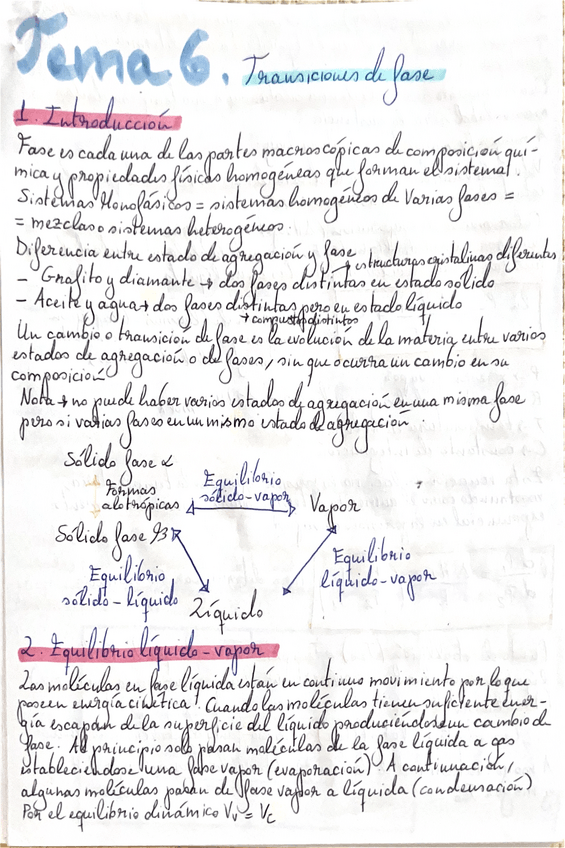 Tema 6. Transiciones de fase
1. Introducción
Fase es cada una de las partes macroscópicas de composición quí-
mica y propiedades físicas homogéneas que forman el sistema.
Sistemas Monofásicos = sistemas homogéneos de varias fases =
= mezclas o sistemas heterogéneos
Diferencia entre estado de agregación y fase
→ estructuras cristalinas diferentes
- Grafito y diamante → dos fases distintas en estado sólido
- Aceite y agua → dos fases distintas pero en estado líquido
→ compuestos distintos
Un cambio o transición de fase es la evolución de la materia entre varios
estados de agregación o de fases, sin que ocurra un cambio en su
composición
Nota → no puede haber varios estados de agregación en una misma fase
pero si varias fases en un mismo estado de agregación
Sólido fase α
formas
alotrópicas
Equilibrio
sólido-vapor
Vapor
Sólido fase β
Equilibrio
sólido-líquido
Equilibrio
líquido-vapor
Líquido
2. Equilibrio líquido-vapor
Las moléculas en fase líquida están en continuo movimiento por lo que
poseen energía cinética. Cuando las moléculas tienen suficiente ener-
gía escapan de la superficie del líquido produciéndose un cambio de
fase. Al principio solo pasan moléculas de la fase líquida a gas
estableciendose una fase vapor (evaporación). A continuación,
algunas moléculas pasan de fase vapor a líquida (condensación)
Por el equilibrio dinámico Vv = Vc